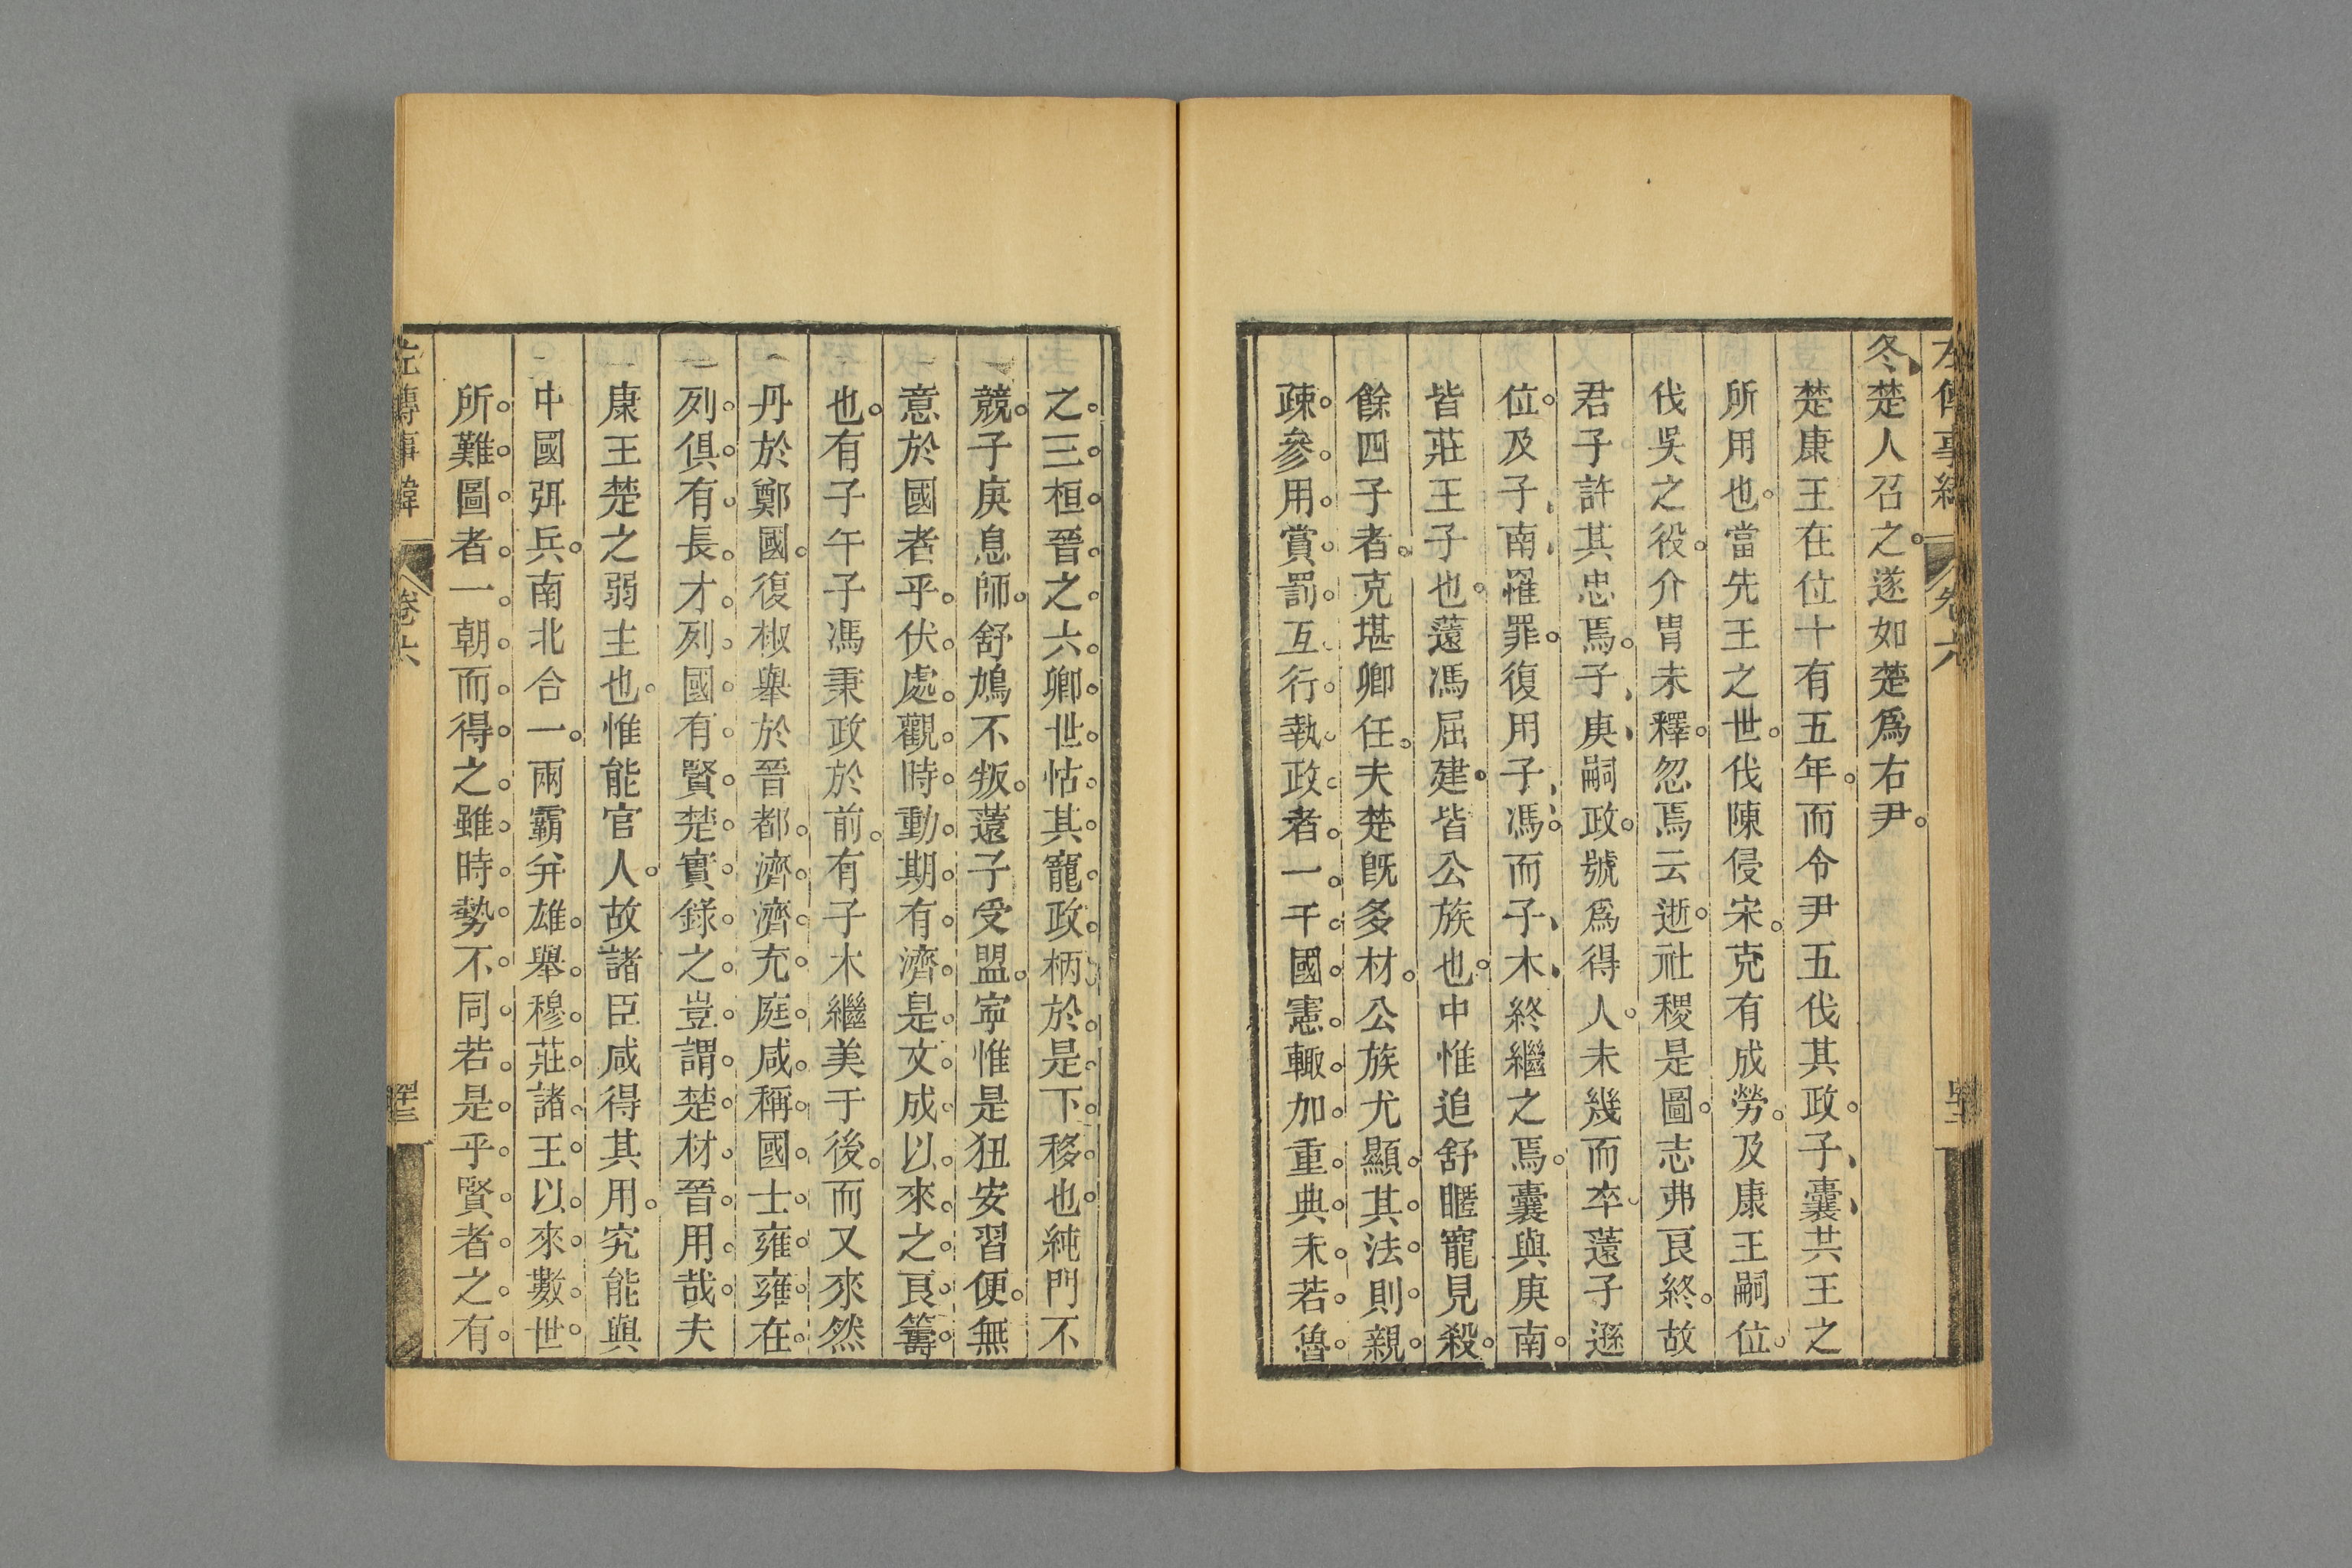 冬楚人召之遂如楚爲右尹
楚康王在位十有五年而令尹五伐其政子囊共王之
所用也當先王之世伐陳侵宋克有成勞及康王嗣位
伐吳之役介胄未釋忽焉云逝社稷是圖志弗艮終故
君子許其忠焉子庚嗣政號爲得人未幾而卒薳子遜
位及子南罹罪復用子馮而子木終繼之焉囊與庚南
皆莊王子也薳馮屈建皆公族也中惟追舒暱寵見殺
餘四子者克堪卿任夫楚旣多材公族尤顯其法則親
疎參用賞罰互行執政者一干國憲輙加重典未若魯
之三桓晉之六卿世怙其寵政柄於是下移也純門不
競子庚息師舒鳩不叛薳子受盟寜惟是狃安習便無
意於國者乎伏處觀時動期有濟是文成以來之艮籌
也有子午子馮秉政於前有子木繼美于後而又來然
丹於鄭國復椒舉於晉都濟濟充庭咸稱國士雍雍在
列俱有長才列國有賢楚實錄之豈謂楚材晉用哉夫
康王楚之弱主也惟能官人故諸臣咸得其用究能與
中國弭兵南北合一兩霸弁雄舉穆莊諸王以來數世
所難圖者一朝而得之雖時勢不同若是乎賢者之有
左傳事緯 卷六